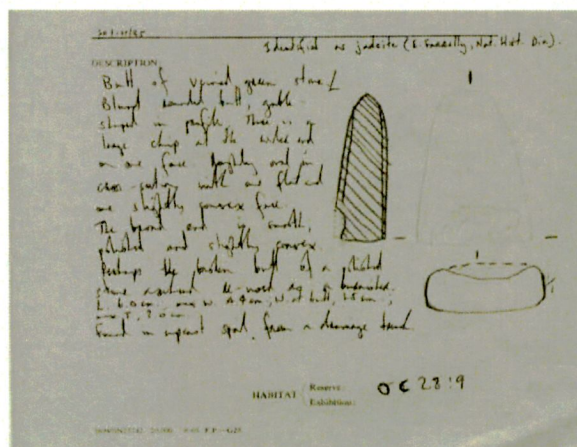 Identified as jadeite (E. Farrelly, Nat. Hist. Div.).
DESCRIPTION
Butt of veined green stone
Blunt rounded butt, gable-
shaped in profile. There is a
large chip at the wider end
on one face. Roughly oval in
cross-section with one flattened
one slightly convex face.
The broad end is smooth,
polished and slightly convex.
Perhaps the broken butt of a polished
stone axehead re-used as a burnisher.
L. 6.0 cm; max W. 4.9 cm; W. at butt,
max T.
Found in upcast spoil from a drainage trench
HABITAT
Reserve:
OC 28:9
Exhibition: